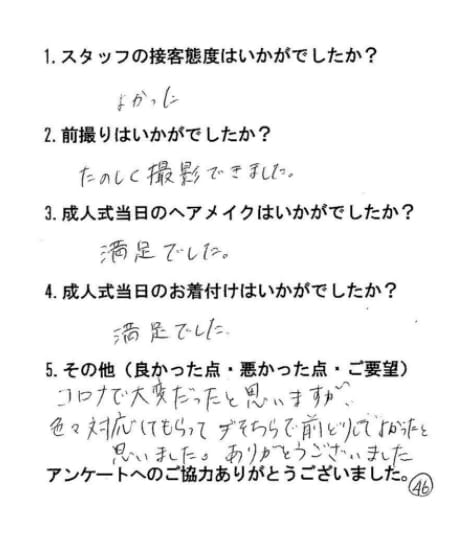 1. スタッフの接客態度はいかがでしたか？
よかった
2. 前撮りはいかがでしたか？
たのしく撮影できました。
3. 成人式当日のヘアメイクはいかがでしたか？
満足でした。
4. 成人式当日のお着付けはいかがでしたか？
満足でした.
5. その他（良かった点・悪かった点・ご要望）
コロナで大変だったと思いますが、
色々対応してもらって そちらで前どりしてよかったと
思いました。ありがとうございました
アンケートへのご協力ありがとうございました。
46